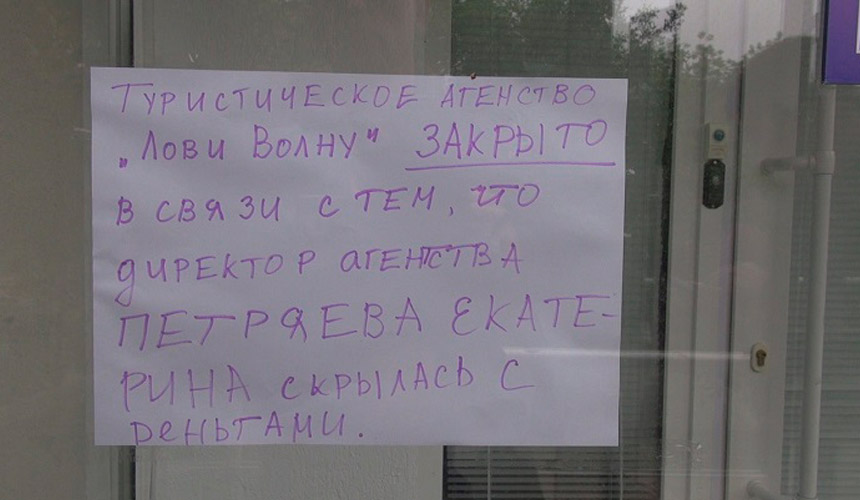 Туристическое агенство
„Лови Волну" ЗАКРЫТО
в связи с тем, что
директор агенства
ПЕТРЯЕВА ЕКАТЕ-
РИНА скрылась с
деньгами.